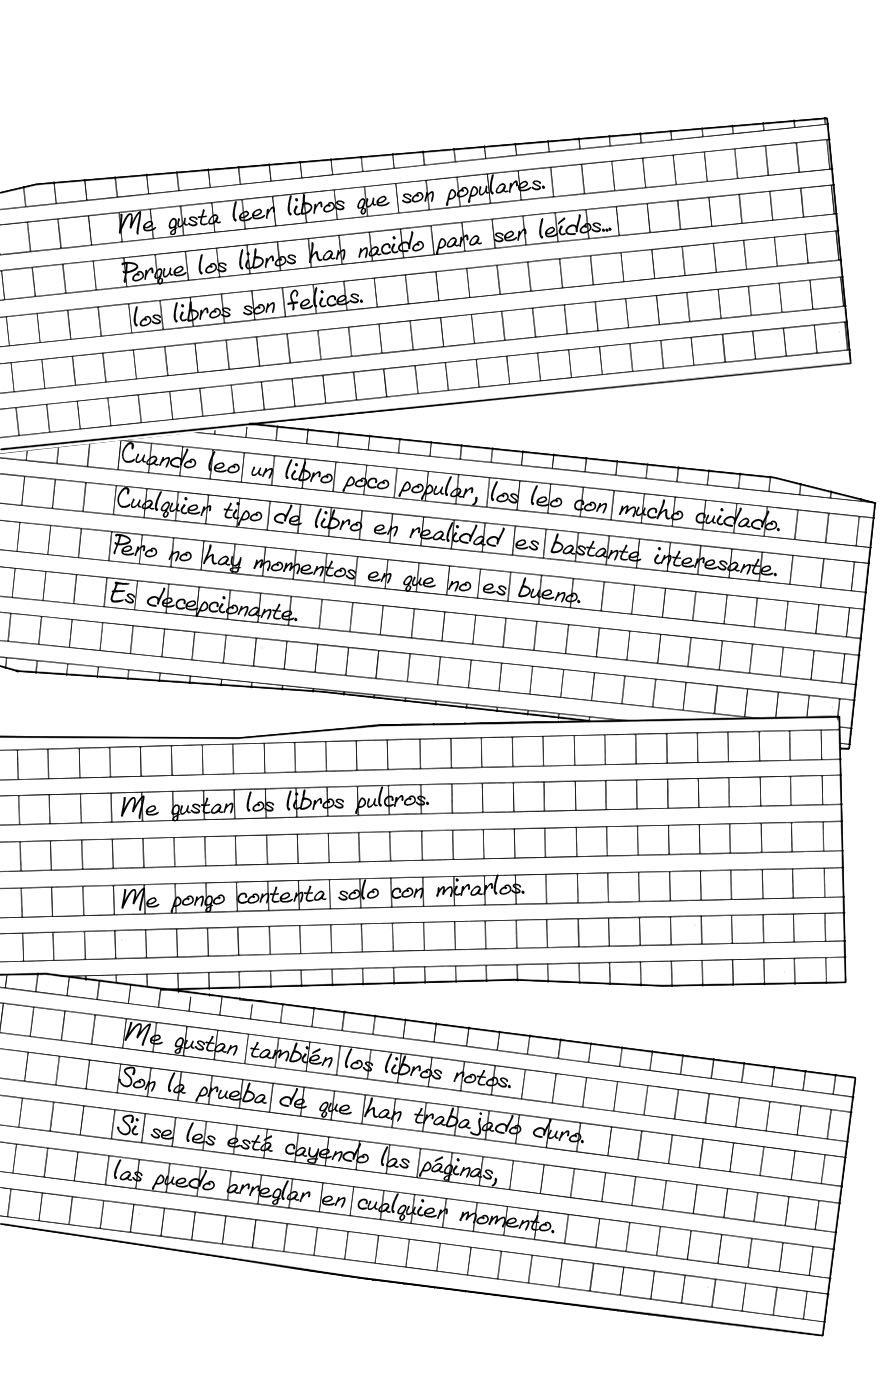 Me gusta leer libros que son populares.
Porque los libros han nacido para ser leídos...
los libros son felices.
Cuando leo un libro poco popular, los leo con mucho cuidado.
Cualquier tipo de libro en realidad es bastante interesante.
Pero no hay momentos en que no es bueno.
Es decepcionante.
Me gustan los libros pulcros.
Me pongo contenta solo con mirarlos.
Me gustan también los libros rotos.
Son la prueba de que han trabajado duro.
Si se les está cayendo las páginas,
las puedo arreglar en cualquier momento.